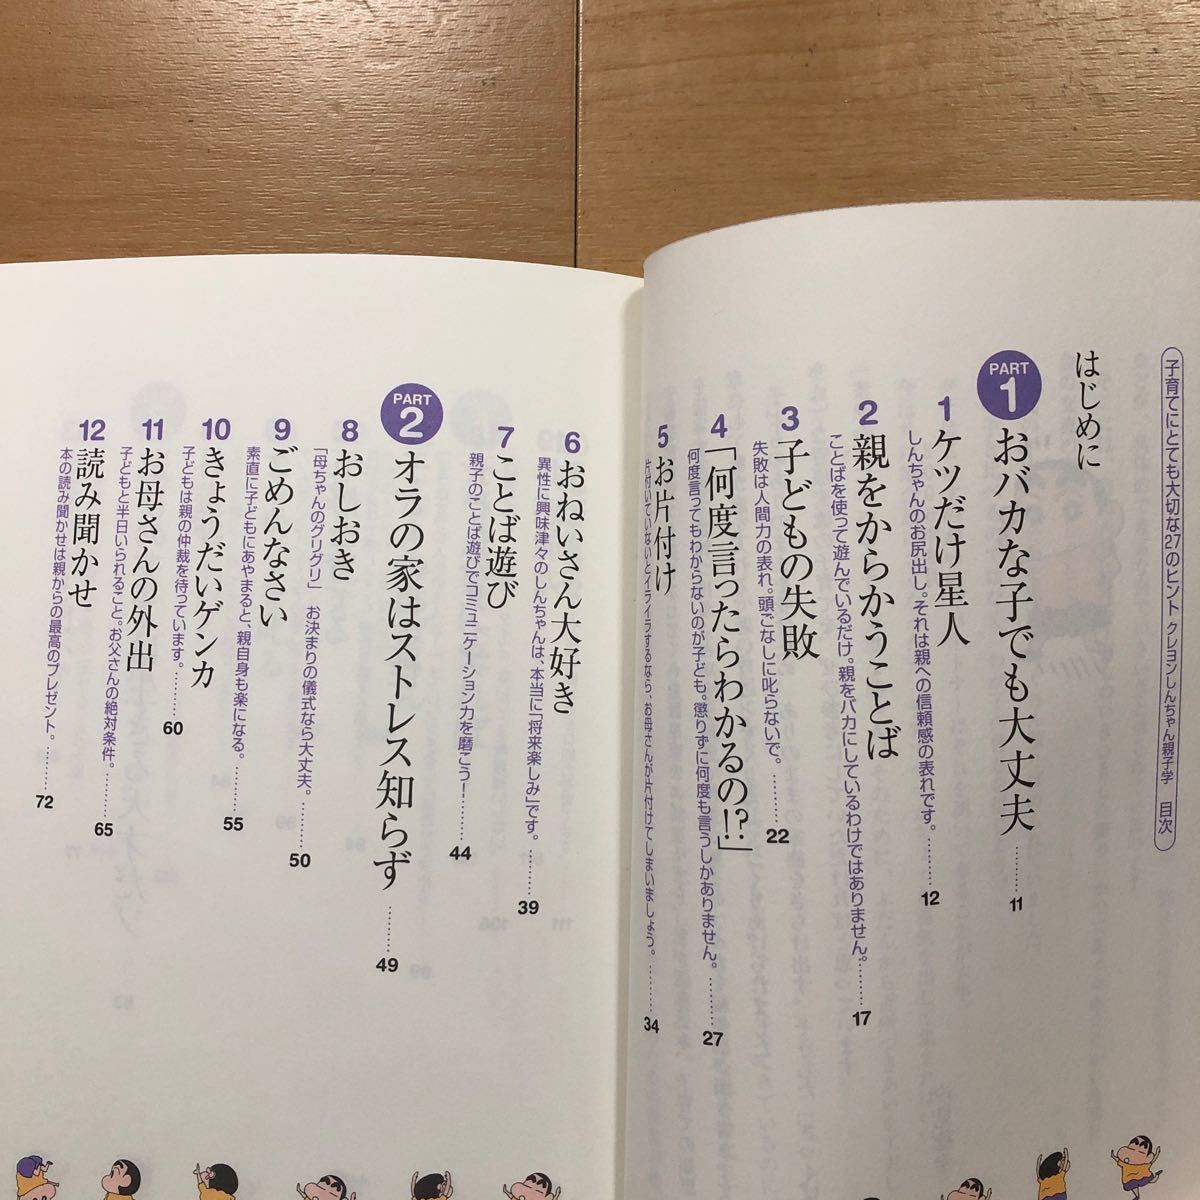 子育てにとても大切な27のヒント クレヨンしんちゃん親子学 目次
はじめに
PART 1 おバカな子でも大丈夫 ……… 11
1 ケツだけ星人
しんちゃんのお尻出し。それは親への信頼感の表れです。……… 12
2 親をからかうことば
ことばを使って遊んでいるだけ。親をバカにしているわけではありません。……… 17
3 子どもの失敗
失敗は人間力の表れ。頭ごなしに叱らないで。……… 22
4 「何度言ったらわかるの!?」
何度言ってもわからないのが子ども。懲りずに何度も言うしかありません。……… 27
5 お片付け
片付いていないとイライラするなら、お母さんが片付けてしまいましょう。……… 34
6 おねいさん大好き
異性に興味津々のしんちゃんは、本当に「将来楽しみ」です。……… 39
7 ことば遊び
親子のことば遊びでコミュニケーション力を磨こう!……… 44
PART 2 オラの家はストレス知らず ……… 49
8 おしおき
「母ちゃんのグリグリ」 お決まりの儀式なら大丈夫。……… 50
9 ごめんなさい
素直に子どもにあやまると、親自身も楽になる。……… 55
10 きょうだいゲンカ
子どもは親の仲裁を待っています。……… 60
11 お母さんの外出
子どもと半日いられること。お父さんの絶対条件。……… 65
12 読み聞かせ
本の読み聞かせは親からの最高のプレゼント。……… 72